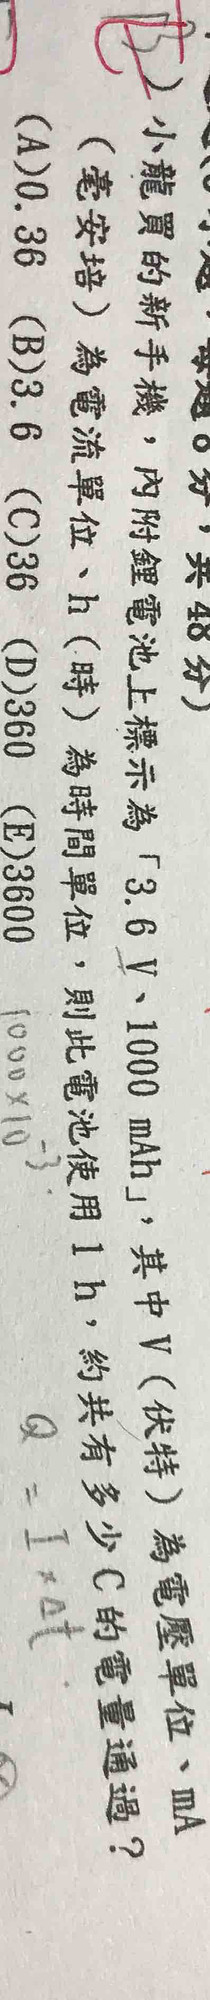 小題,每題8分,共48分)
)小龍買的新手機,內附鋰電池上標示為「3.6 V、1000 mAh」,其中V(伏特)為電壓單位、mA
(毫安培)為電流單位、h(時)為時間單位,則此電池使用1 h,約共有多少C的電量通過?
(A)0.36 (B)3.6 (C)36 (D)360 (E)3600
1000×10⁻³.
Q = I×Δt.